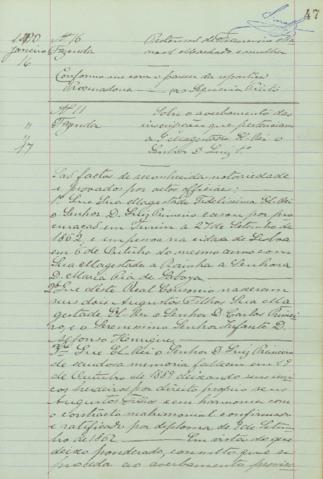 47
1890 Nº 16
Janeiro Fazenda
16
Conformo-me com o parecer da repartição
Procuradoria
Nº 11 Sobre o averbamento das
" Fazenda inscripções que pertenciam
" a Sua Magestade El-Rei o
17 Senhor D. Luiz 1º
São factos de reconhecida notoriedade
e provados por actos officiaes:
1º Que Sua Magestade Fidelissima El-Rei
o Senhor D. Luiz Primeiro casou por pro
curação em Turim a 27 de Setembro de
1862, e em pessoa na cidade de Lisboa
em 6 de Outubro do mesmo anno com
Sua Magestade a Rainha a Senhora
D. Maria Pia de Saboya.
2º Que deste Real Consorcio nasceram
seus dois Augustos Filhos, Sua Ma
gestade El-Rei o Senhor D. Carlos Primei
ro, e o Serenissimo Senhor Infante D.
Affonso Henriques.
3º Que El-Rei o Senhor D. Luiz Primeiro
de saudosa memoria falleceu em 19
de Outubro de 1889 deixando seus uni
cos herdeiros por direito proprio seus
Augustos Filhos e em harmonia com
o contracto matrimonial confirmado
e ratificado por diploma de 9 de Setem
bro de 1862. Em vista do que
deixo ponderado, consulto que se
proceda ao averbamento